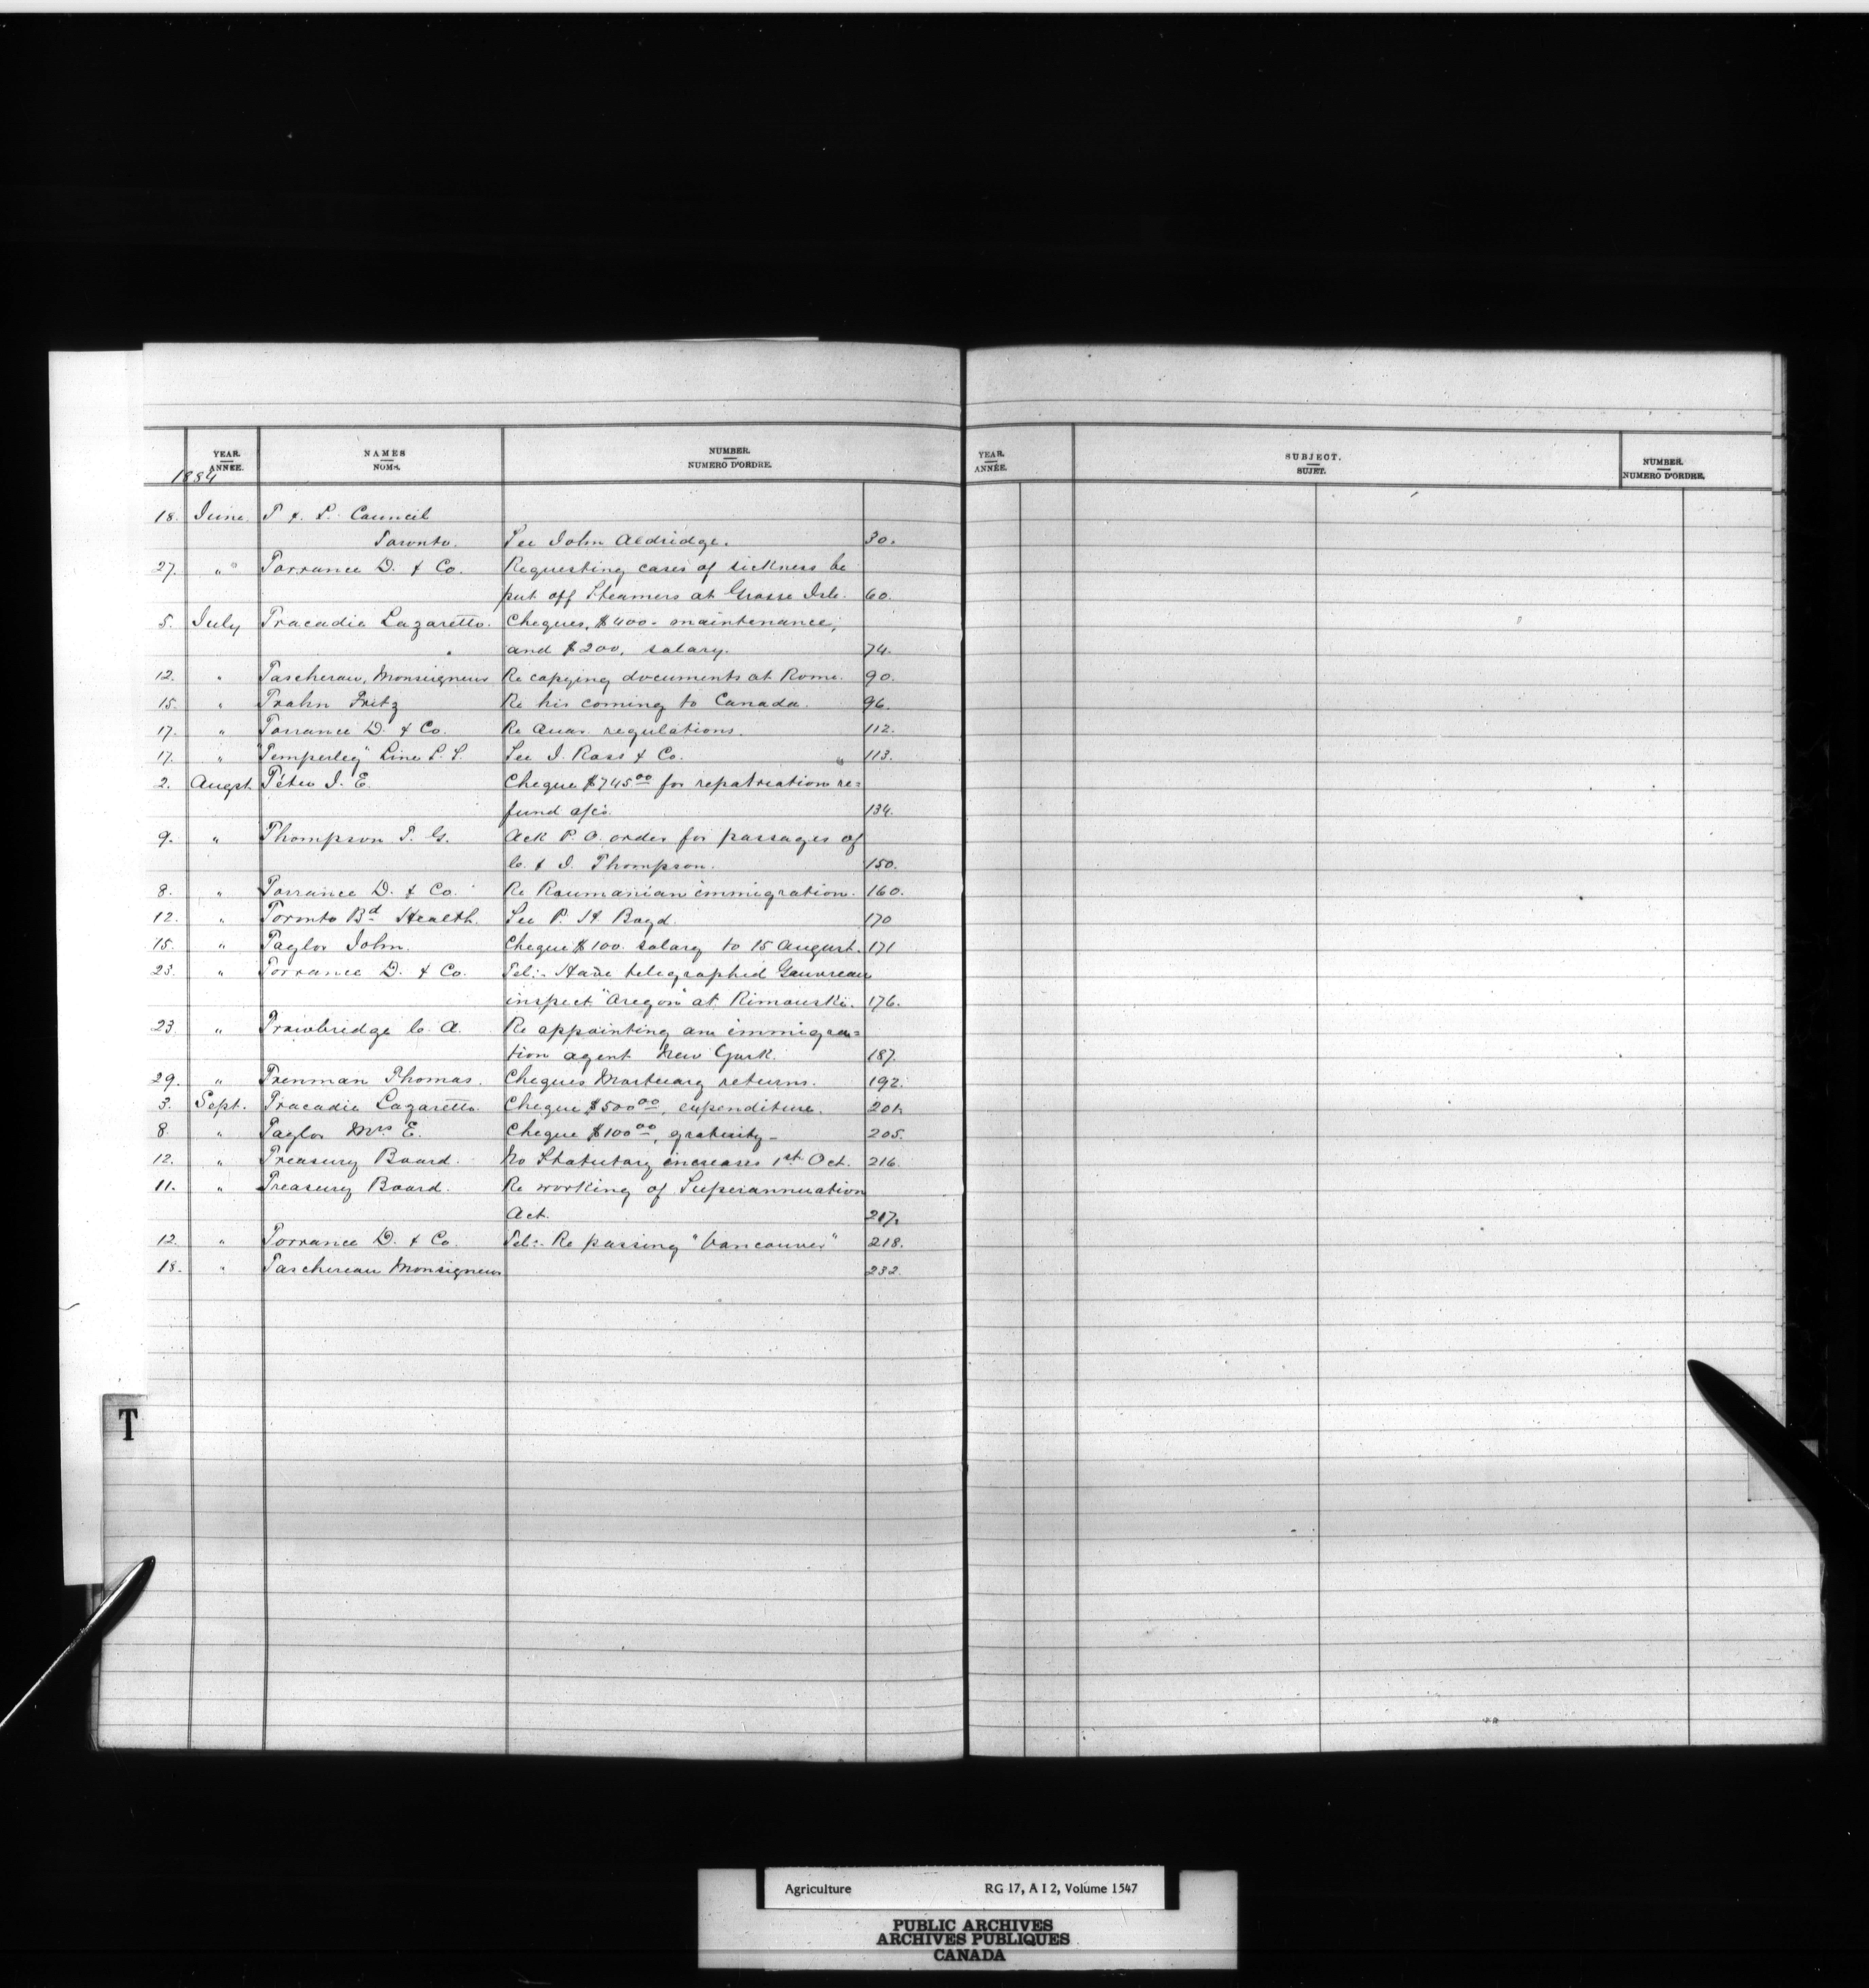 YEAR. NAMES NUMBER. YEAR. SUBJECT. NUMBER.
ANNÉE. NOMS. NUMERO D'ORDRE. ANNÉE. SUJET. NUMERO D'ORDRE.
1884
18. June. T & L Council
Toronto. See John Aldridge. 30.
27. " Torrance D. & Co. Requesting cases of sickness be
put off Steamers at Grosse Isle. 60.
5. July Tracadie Lazaretto. Cheques, $400 - maintenance,
and $200, salary. 74.
12. " Tascherau, Monseigneur Re copying documents at Rome. 90.
15. " Trahn Fritz Re his coming to Canada. 96.
17. " Torrance D. & Co. Re Quar. regulations. 112.
17. " "Temperley" Line S. S. See J. Ross & Co. " 113.
2. Augst. Têtu J. E. Cheque $745 00 for repatriation re=
fund a/cs. 134.
9. " Thompson T. G. Ack P. O. order for passages of
C. & J. Thompson. 150.
8. " Torrance D. & Co. Re Roumanian immigration. 160.
12. " Toronto Bd Health. See P. H. Boyd. 170
15. " Taylor John. Cheque $100. salary to 15 August. 171
23. " Torrance D. & Co. Tel:- Have telegraphed Gauvreau
inspect "Oregon" at Rimouski. 176.
23. " Trowbridge C. A. Re appointing an immigra=
tion agent New York. 187.
29. " Trenman Thomas. Cheques Mortuary returns. 192.
3. Sept. Tracadie Lazaretto. Cheque $500 00, expenditure. 201.
8. " Taylor Mrs E. Cheque $100 00, gratuity - 205.
12. " Treasury Board. No Statutary increases 1st Oct. 216.
11. " Treasury Board. Re working of Superannuation
Act. 217.
12. " Torrance D. & Co. Tel:- Re passing "Vancouver" 218.
18. " Taschereau Monsigneur 232.
T
Agriculture RG 17, A I 2, Volume 1547
PUBLIC ARCHIVES
ARCHIVES PUBLIQUES
CANADA